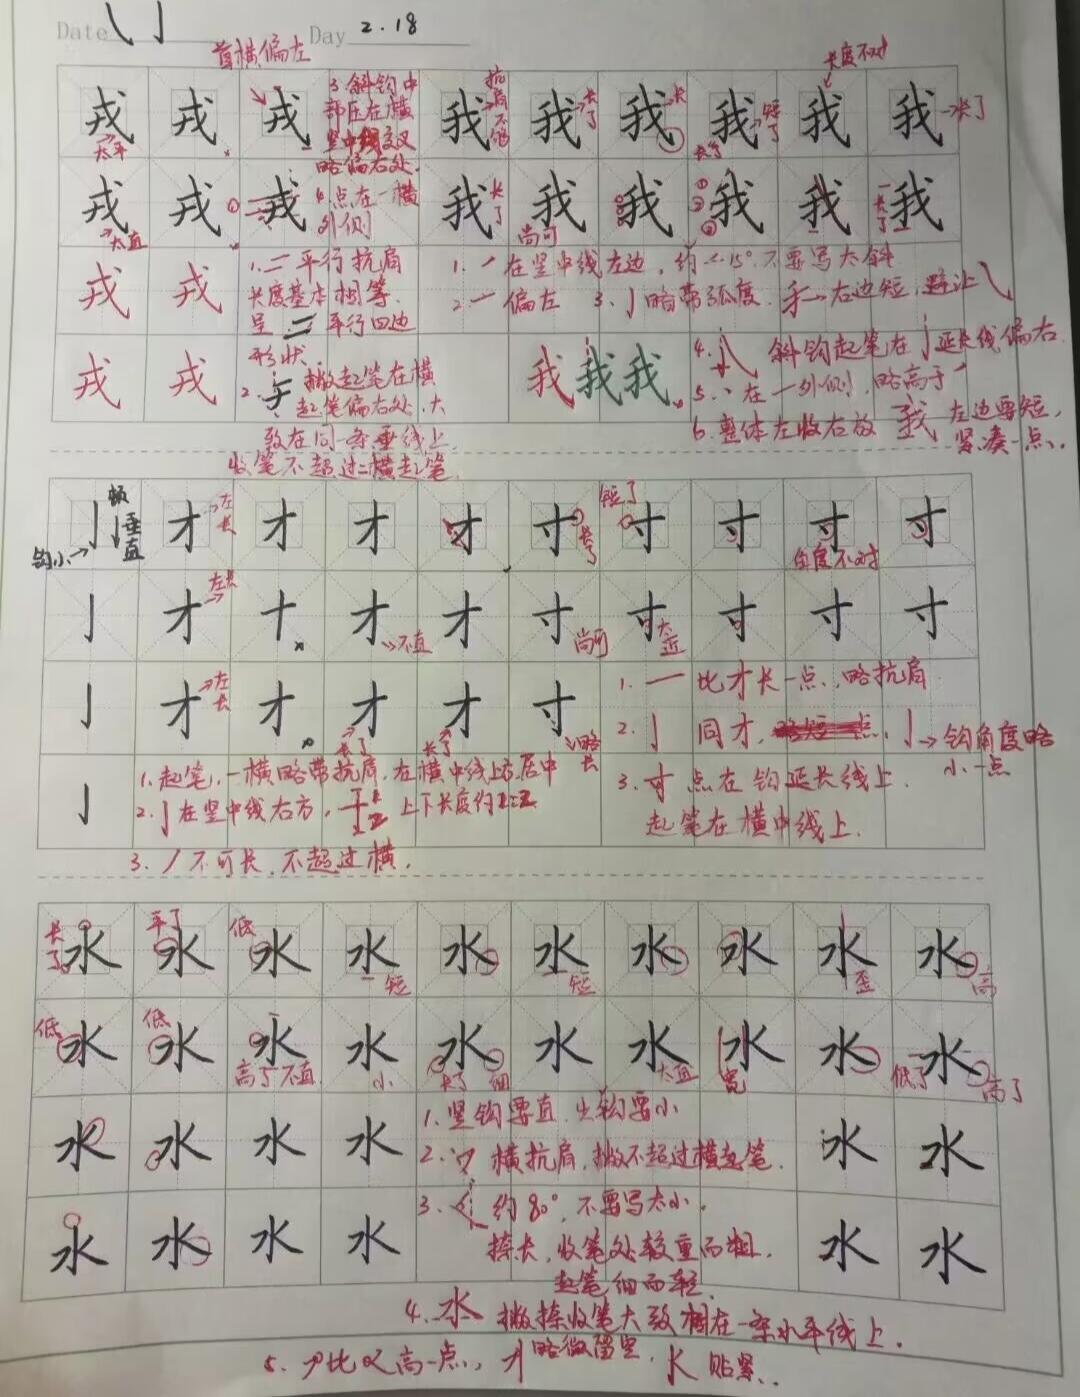 Date 乀 亅 Day 2.18
首横偏左
长度不对
戎 戎 戎 我 我 我 我 我 我
太平
3.斜钩中
部压在横
竖中线交叉
略偏右处.
抗肩不够
长了
长
短了
长了
长了
戎 戎 戎 我 我 我 我 我 我
太直
①
4.点在一横
外侧
长了
尚可
① ② ③
长了
戎 戎
1.二平行抗肩
长度基本相等.
呈二平行四边
形状.
2. 撇起笔在横
起笔偏右处,大
致在同一条垂线上.
收笔不超过二横起笔.
1.㇒在竖中线左边,约<15°.不要写太斜
2.一偏左 3.亅略带弧度. 右边短,避让㇂
戎 戎 我 我 我
4. 斜钩起笔在亅延长线偏右.
5.丶在一外侧,略高于㇒
6.整体左收右放 我 左边要短,
紧凑一点.
亅 才 才 才 才 寸 寸 寸 寸 寸
顿
垂直
钩小
左长
长了
短了
角度不对
亅 才 十 才 才 寸 寸 寸 寸 寸
左长
不直
尚可
太近
亅 才 才 才 才 寸
左长
长了
长了
略长
1.一比才长一点,略抗肩
2.亅同才, 亅→钩角度略
小一点
3.寸点在钩延长线上.
起笔在横中线上.
亅
1.起笔,一横略带抗肩,在横中线上方居中
2.亅在竖中线右方, 上下长度约1:2
3.丿不可长,不超过横.
水 水 水 水 水 水 水 水 水 水
长了
平了
低
短
短
歪
高
水 水 水 水 水 水 水 水 水 水
低
低
高了不直
小
长了
细
太直
宽
低了
高了
水 水 水 水 水 水
1.竖钩要直,出钩要小
2.㇇横抗肩,撇不超过横起笔.
水 水 水 水 水 水
3. 约80°,不要写太小.
捺长,收笔处较重而粗,
起笔细而轻.
4.水 撇捺收笔大致相在一条水平线上.
5. 比 高一点, 略微留空, 贴紧.